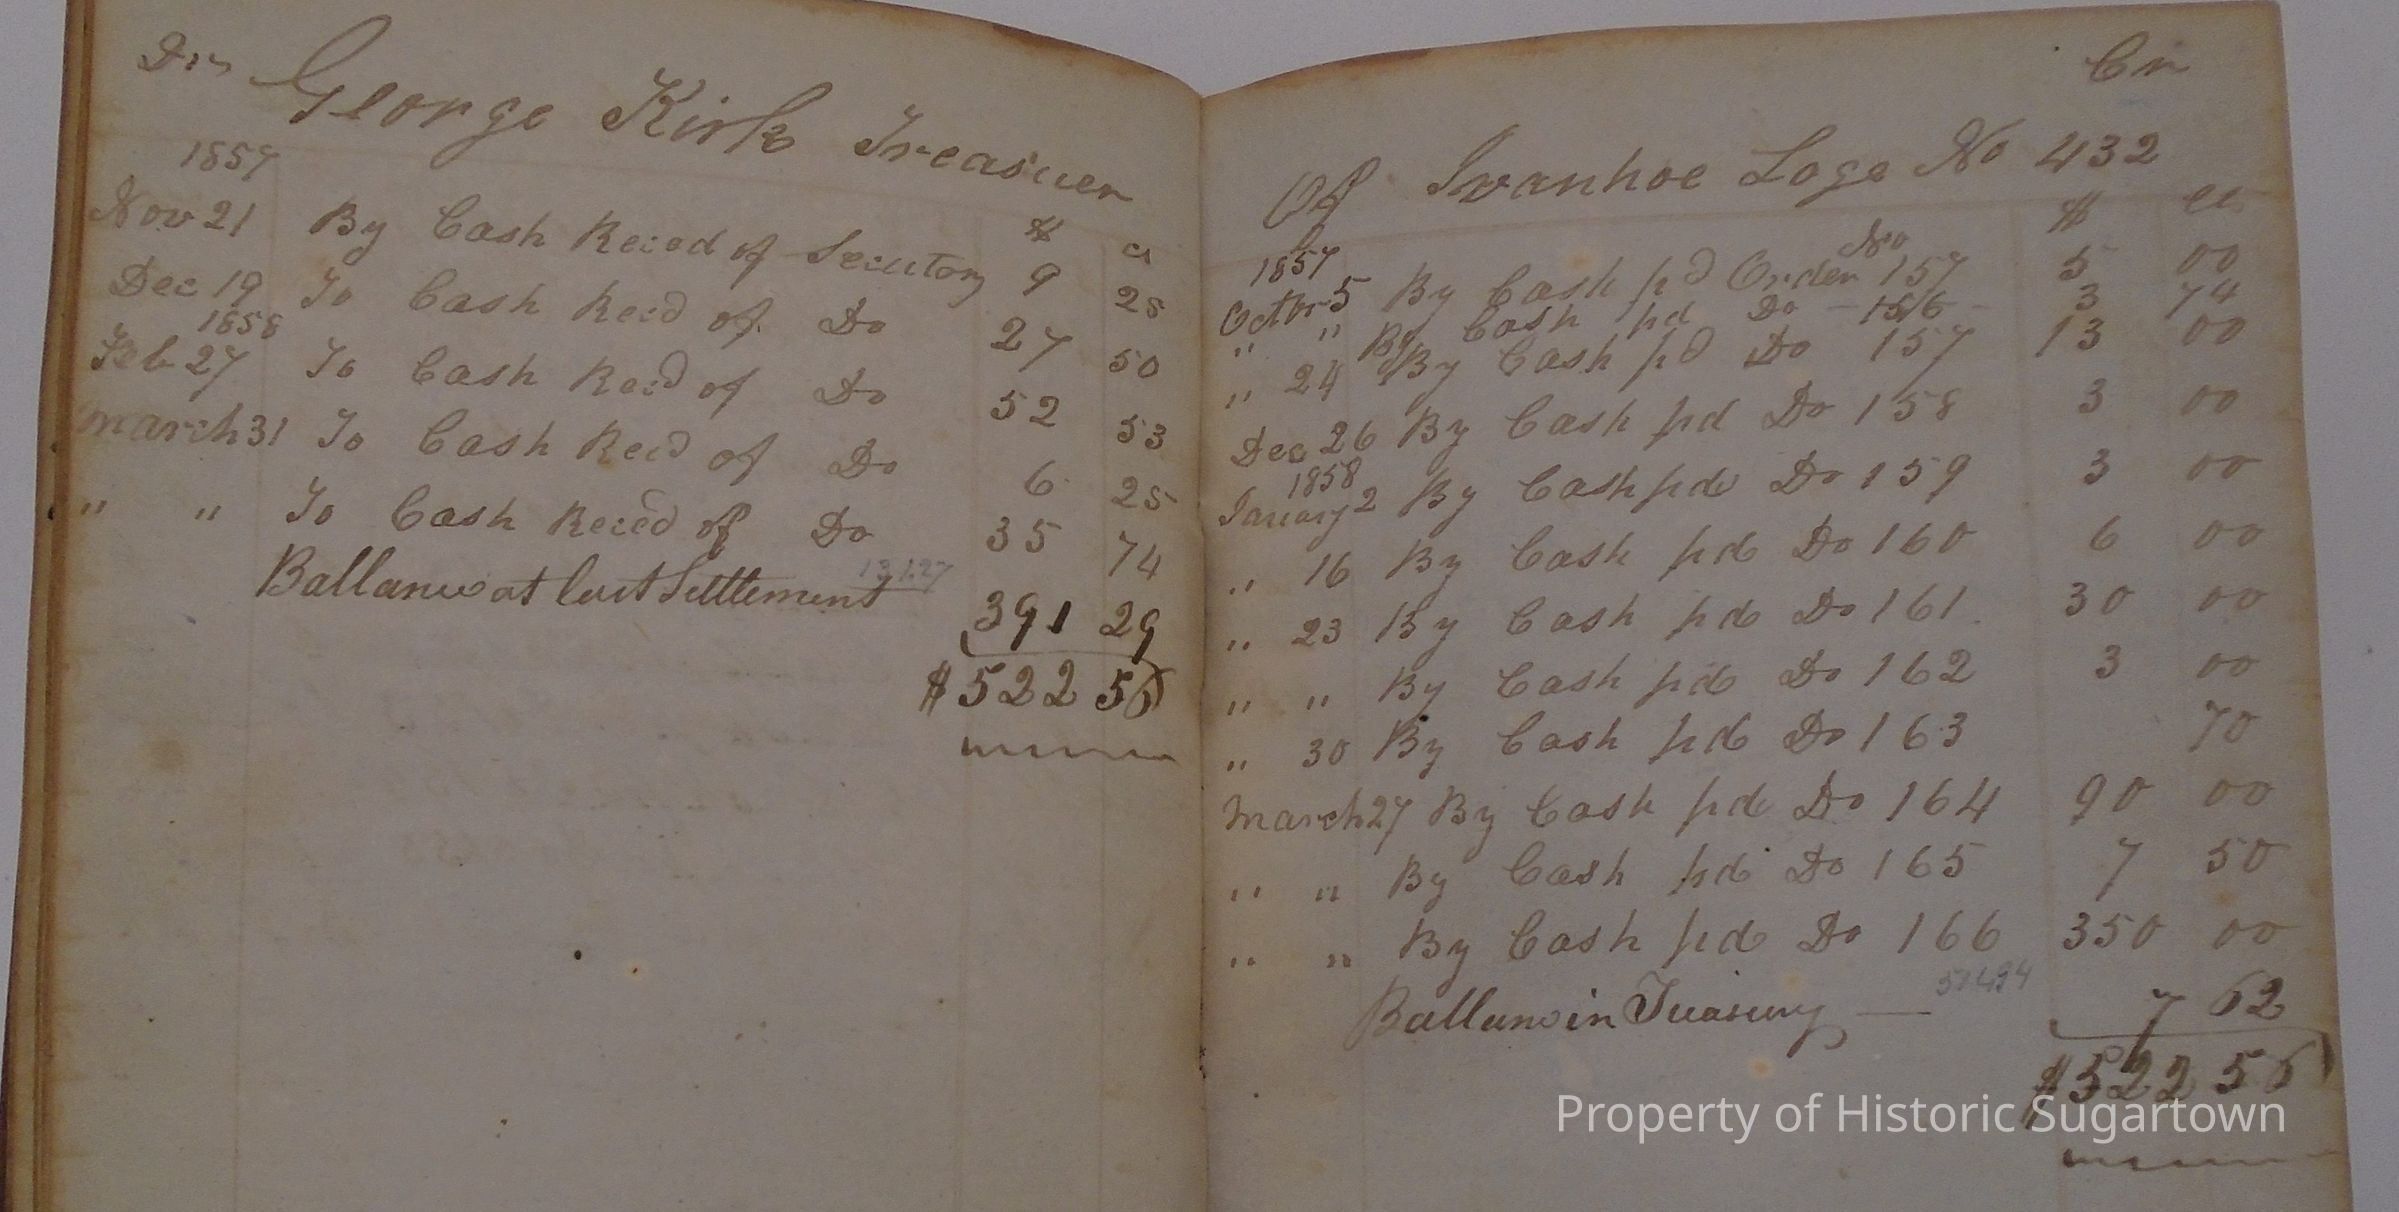 Dr George Kirk Treasuer
1857 $ cs
Nov 21 By Cash Reced of Secutory 9 25
Dec 19 To Cash Recd of Do 27 50
1858
Feb 27 To Cash Recd of Do 52 53
March 31 To Cash Recd of Do 6 25
" " To Cash Reced of Do 35 74
131.27
Ballance at last Settlement 391 29
$522 56
Cr
Of Ivanhoe Loge No 432
$ cs
1857 No
Octbr 5 By Cash pd Order 157 5 00
" " By Cash pd Do - 156 - 3 74
" 24 By Cash pd Do 157 13 00
Dec 26 By Cash pd Do 158 3 00
1858
January 2 By Cash pd Do 159 3 00
" 16 By Cash pd Do 160 6 00
" 23 By Cash pd Do 161 30 00
" " By Cash pd Do 162 3 00
" 30 By Cash pd Do 163 70
March 27 By Cash pd Do 164 90 00
" " By Cash pd Do 165 7 50
" " By Cash pd Do 166 350 00
Ballance in Treasury — 7 62
$522 56
Property of Historic Sugartown